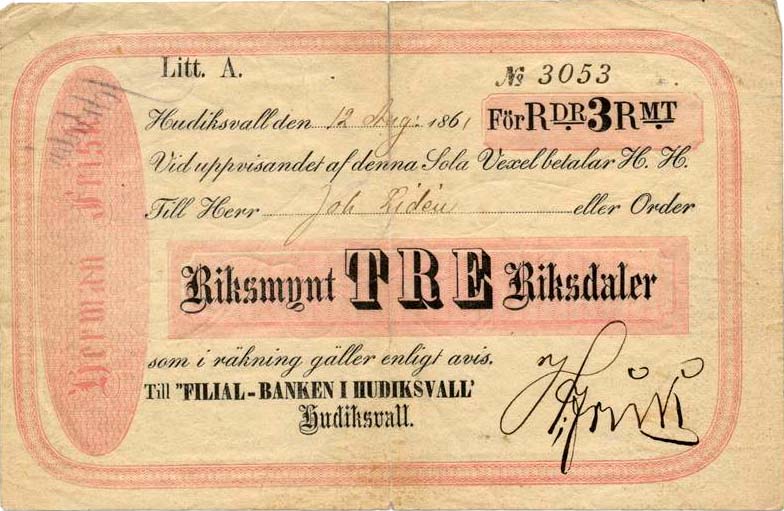 Litt. A.
№ 3053
Hudiksvall den 12 Aug: 1861
För RDR 3 RMT
Vid uppvisandet af denna Sola Vexel betalar H. H.
Till Herr Job Lidén eller Order
Riksmynt TRE Riksdaler
som i räkning gäller enligt avis.
Till "FILIAL-BANKEN I HUDIKSVALL'
Hudiksvall.
Herrman